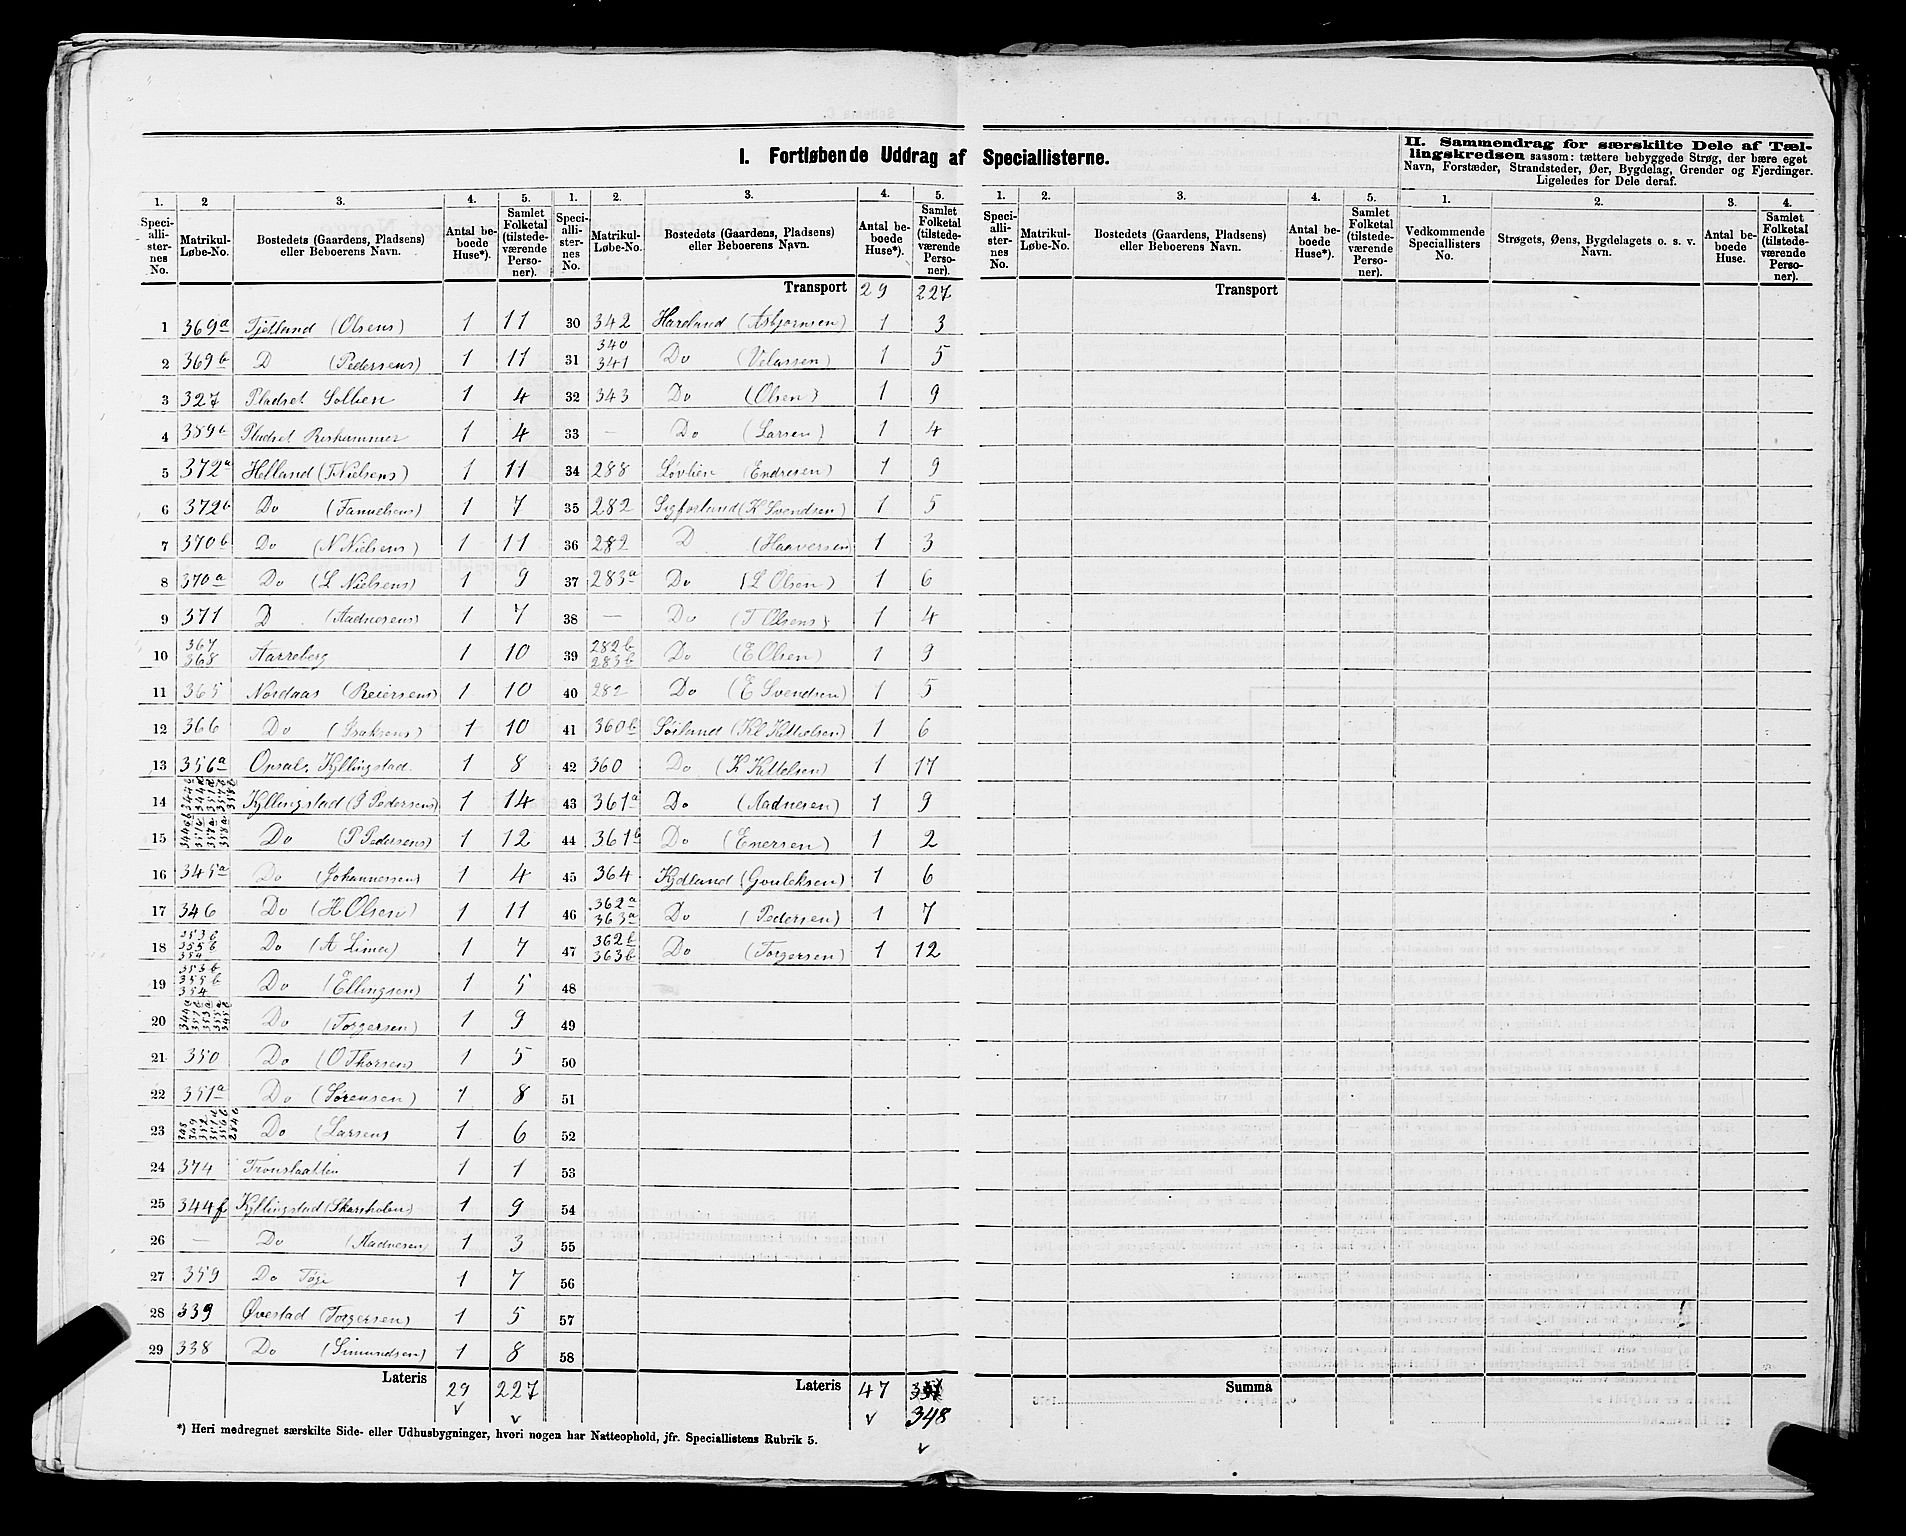 I. Fortløbende Uddrag af Speciallisterne.
II. Sammendrag for særskilte Dele af Tæl-
lingskredsen saasom: tættere bebyggede Strøg, der bære eget
Navn, Forstæder, Strandsteder, Øer, Bygdelag, Grender og Fjerdinger.
Ligeledes for Dele deraf.
1. 2 3. 4. 5. 1. 2. 3. 4. 5. 1. 2. 3. 4. 5. 1. 2. 3. 4.
Speci-allister-nes No. Matrikul-Løbe-No. Bostedets (Gaardens, Pladsens) eller Beboerens Navn. Antal be-boede Huse*). Samlet Folketal (tilstede-værende Perso-ner).
Speci-allister-nes No. Matrikul-Løbe-No. Bostedets (Gaardens, Pladsens) eller Beboerens Navn. Antal be-boede Huse*). Samlet Folketal (tilstede-værende Perso-ner).
Speci-allister-nes No. Matrikul-Løbe-No. Bostedets (Gaardens, Pladsens) eller Beboerens Navn. Antal be-boede Huse*). Samlet Folketal (tilstede-værende Perso-ner).
Vedkommende Speciallisters No. Strøgets, Øens, Bygdelagets o. s. v. Navn. Antal be-boede Huse. Samlet Folketal (tilstede-værende Perso-ner).
1 369a Tjetland (Olsens) 1 11
2 369b D (Pedersens) 1 11
3 327 Pladset Sollien 1 4
4 389b Pladset Reshammer 1 4
5 372a Helland (T Nielsens) 1 11
6 372b Do (Fanuelsens) 1 7
7 370b Do (N Nielsens) 1 11
8 370a Do (L Nielsens) 1 9
9 371 D (Aadnesens) 1 7
10 367 368 Aarreberg 1 10
11 365 Nordaas (Reiersens) 1 10
12 366 Do (Isaksens) 1 10
13 356a Opsal, Kyllingstad 1 8
14 Kyllingstad (J Pedersens) 1 14
15 Do (P Pedersens) 1 12
16 345a Do (Johannessen) 1 4
17 346 Do (H Olsen) 1 11
18 353b 355b 354 Do (A Lima) 1 7
19 353b 355b 354 Do (Ellingsen) 1 5
20 Do (Torgersen) 1 9
21 350 Do (O Thorsens) 1 5
22 351a Do (Sørensen) 1 8
23 Do (Larsens) 1 6
24 374 Tronslaatten 1 1
25 344f Kyllingstad (Skarsholen) 1 9
26 — Do (Aadnesen) 1 3
27 359 Do 1 7
28 339 Øvestad (Torgersen) 1 5
29 338 Do (Simundsen) 1 8
Lateris 29 227
Transport 29 227
30 342 Hareland (Asbjørnsen) 1 3
31 340 341 Do (Velassen) 1 5
32 343 Do (Olsen) 1 9
33 — Do (Larsen) 1 4
34 288 Lovlien (Endresen) 1 9
35 282 Sigfosland (K Svendsen) 1 5
36 282 D (Haaversen 1 3
37 283a Do (L Olsen) 1 6
38 — Do (T Olsens) 1 4
39 282b 283b Do (E Olsen) 1 9
40 282 Do (E Svendsen) 1 5
41 360b Søiland (Kl Kittelsen) 1 6
42 360 Do (K Kittelsen) 1 17
43 361a Do (Aadnesen) 1 9
44 361b Do (Enersen) 1 2
45 364 Kydland (Gouleksen) 1 6
46 362a 363a Do (Pedersen) 1 7
47 362b 363b Do (Torgersen) 1 12
48
49
50
51
52
53
54
55
56
57
58
Lateris 47
348
Transport
Summa
*) Heri medregnet særskilte Side- eller Udhusbygninger, hvori nogen har Natteophold, jfr. Speciallistens Rubrik 5.